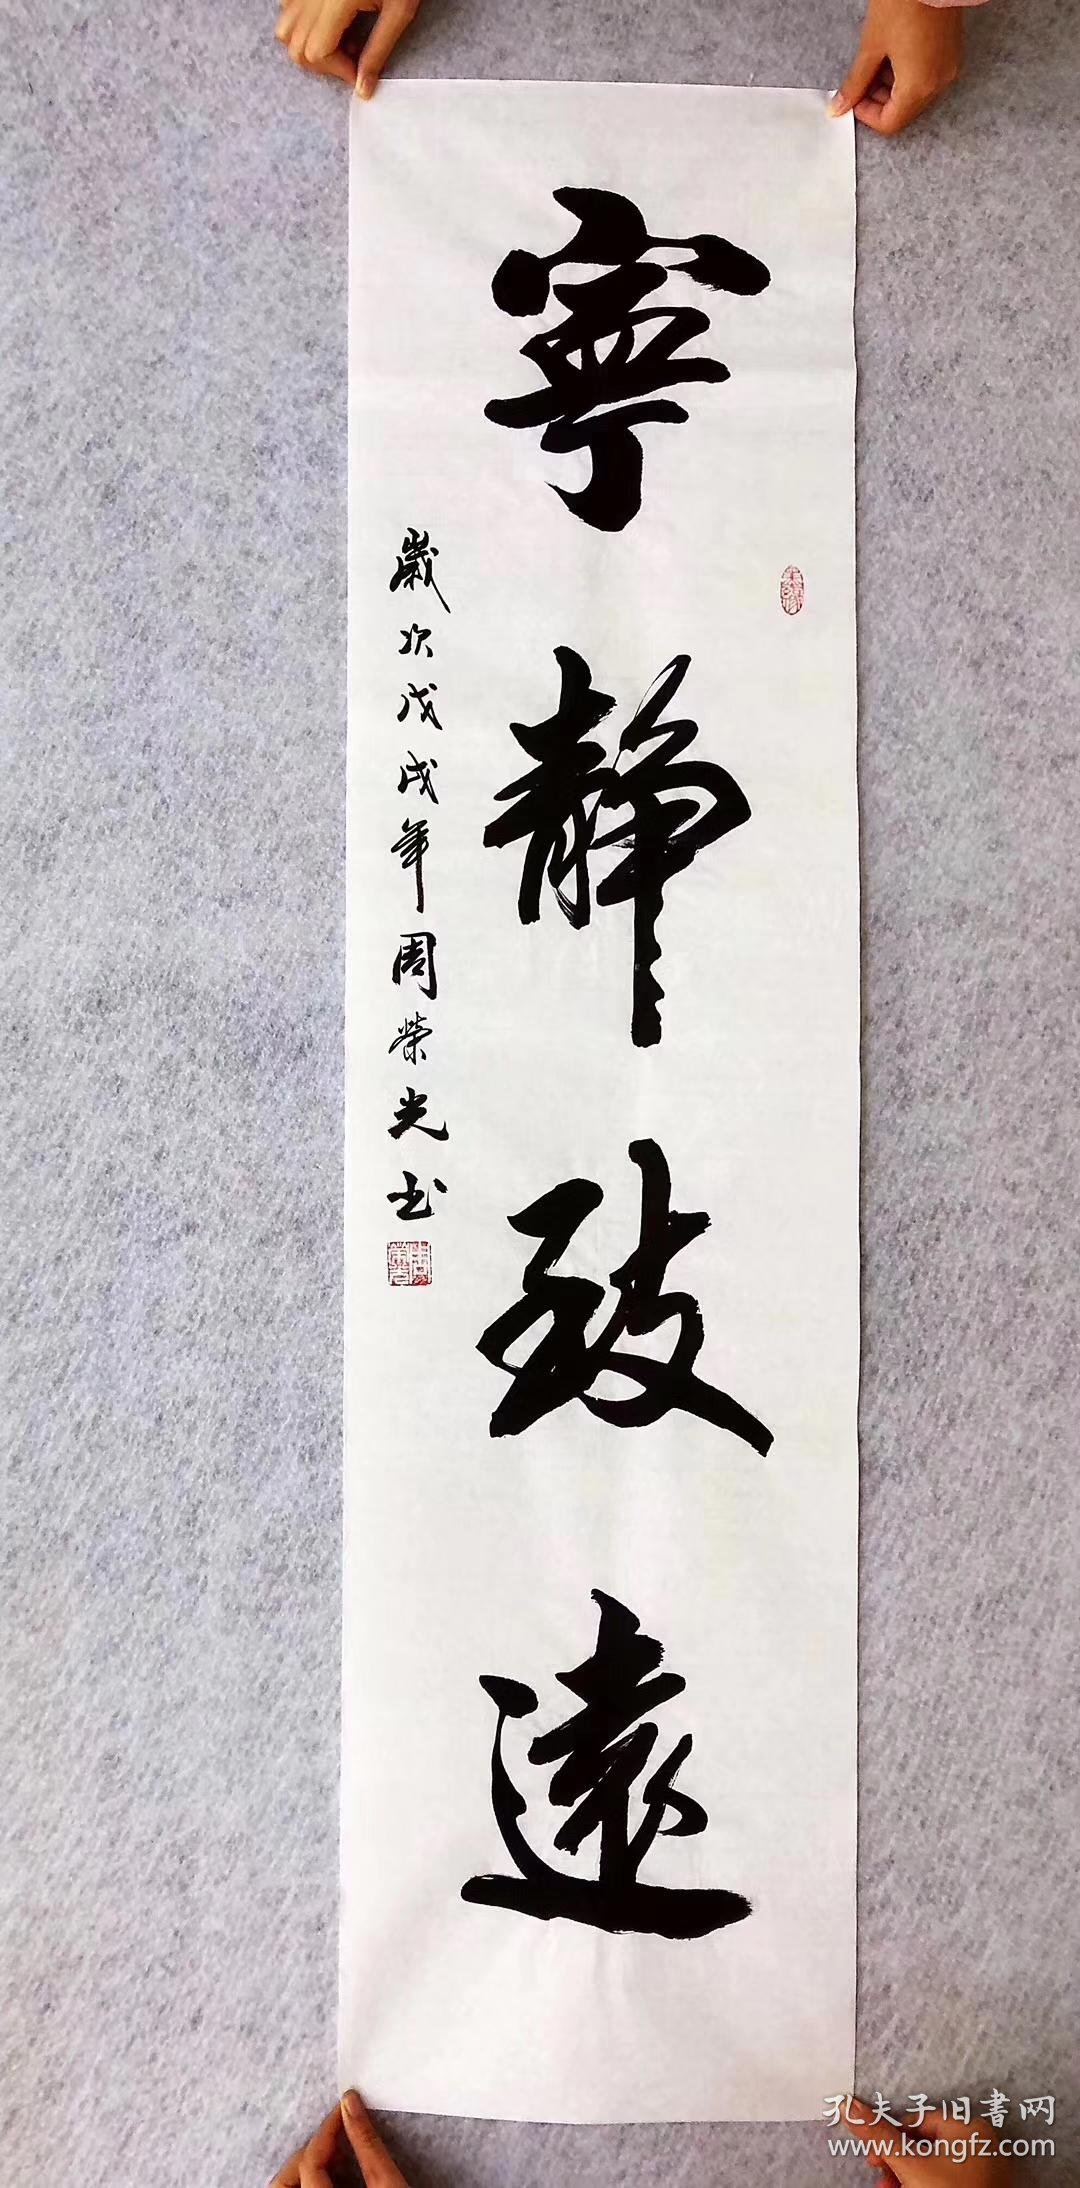 寧靜致遠
歲次戊戌年周榮光书
周榮光
孔夫子旧書网
www.kongfz.com